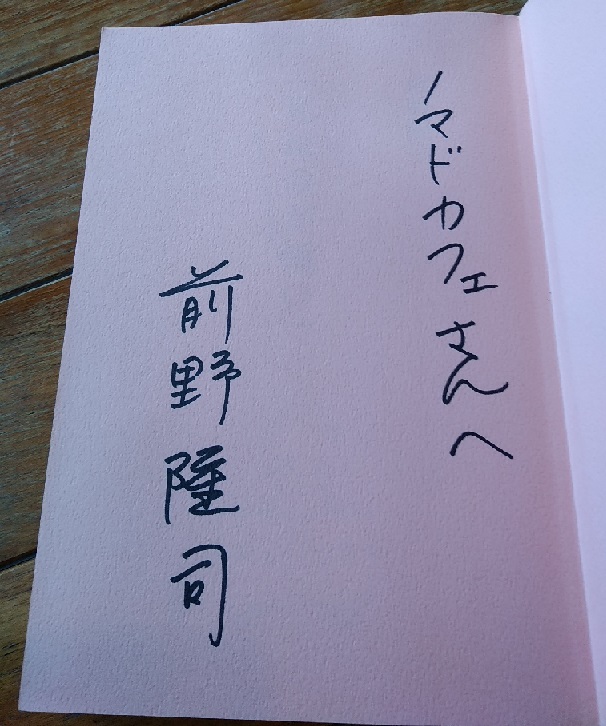 ノマドカフェさんへ
前野隆司